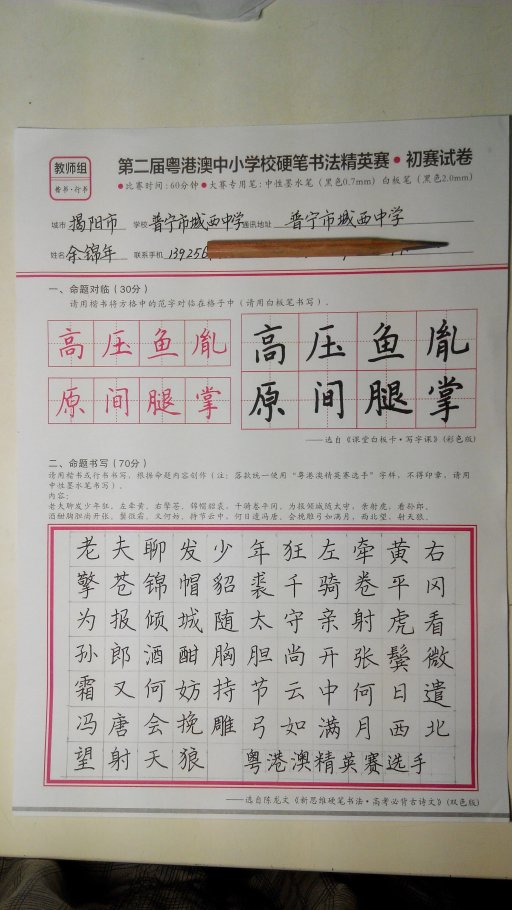 教师组
楷书·行书
第二届粤港澳中小学校硬笔书法精英赛·初赛试卷
●比赛时间:60分钟●大赛专用笔:中性墨水笔(黑色0.7mm)白板笔(黑色2.0mm)
城市 揭阳市 学校 普宁市城西中学 通讯地址 普宁市城西中学
姓名 余锦年 联系手机 139256
一、命题对临(30分)
请用楷书将方格中的范字对临在格子中(请用白板笔书写)。
高压鱼胤 高压鱼胤
原间腿掌 原间腿掌
——选自《课堂白板卡·写字课》(彩色版)
二、命题书写(70分)
请用楷书或行书书写,根据命题内容创作(注:落款统一使用“粤港澳精英赛选手”字样,不得印章,请用
中性墨水笔书写)。
内容:
老夫聊发少年狂,左牵黄,右擎苍,锦帽貂裘,千骑卷平冈。为报倾城随太守,亲射虎,看孙郎。
酒酣胸胆尚开张,鬓微霜,又何妨,持节云中,何日遣冯唐。会挽雕弓如满月,西北望,射天狼。
老夫聊发少年狂左牵黄右
擎苍锦帽貂裘千骑卷平冈
为报倾城随太守亲射虎看
孙郎酒酣胸胆尚开张鬓微
霜又何妨持节云中何日遣
冯唐会挽雕弓如满月西北
望射天狼 粤港澳精英赛选手
——选自陈龙文《新思维硬笔书法·高考必背古诗文》(双色版)